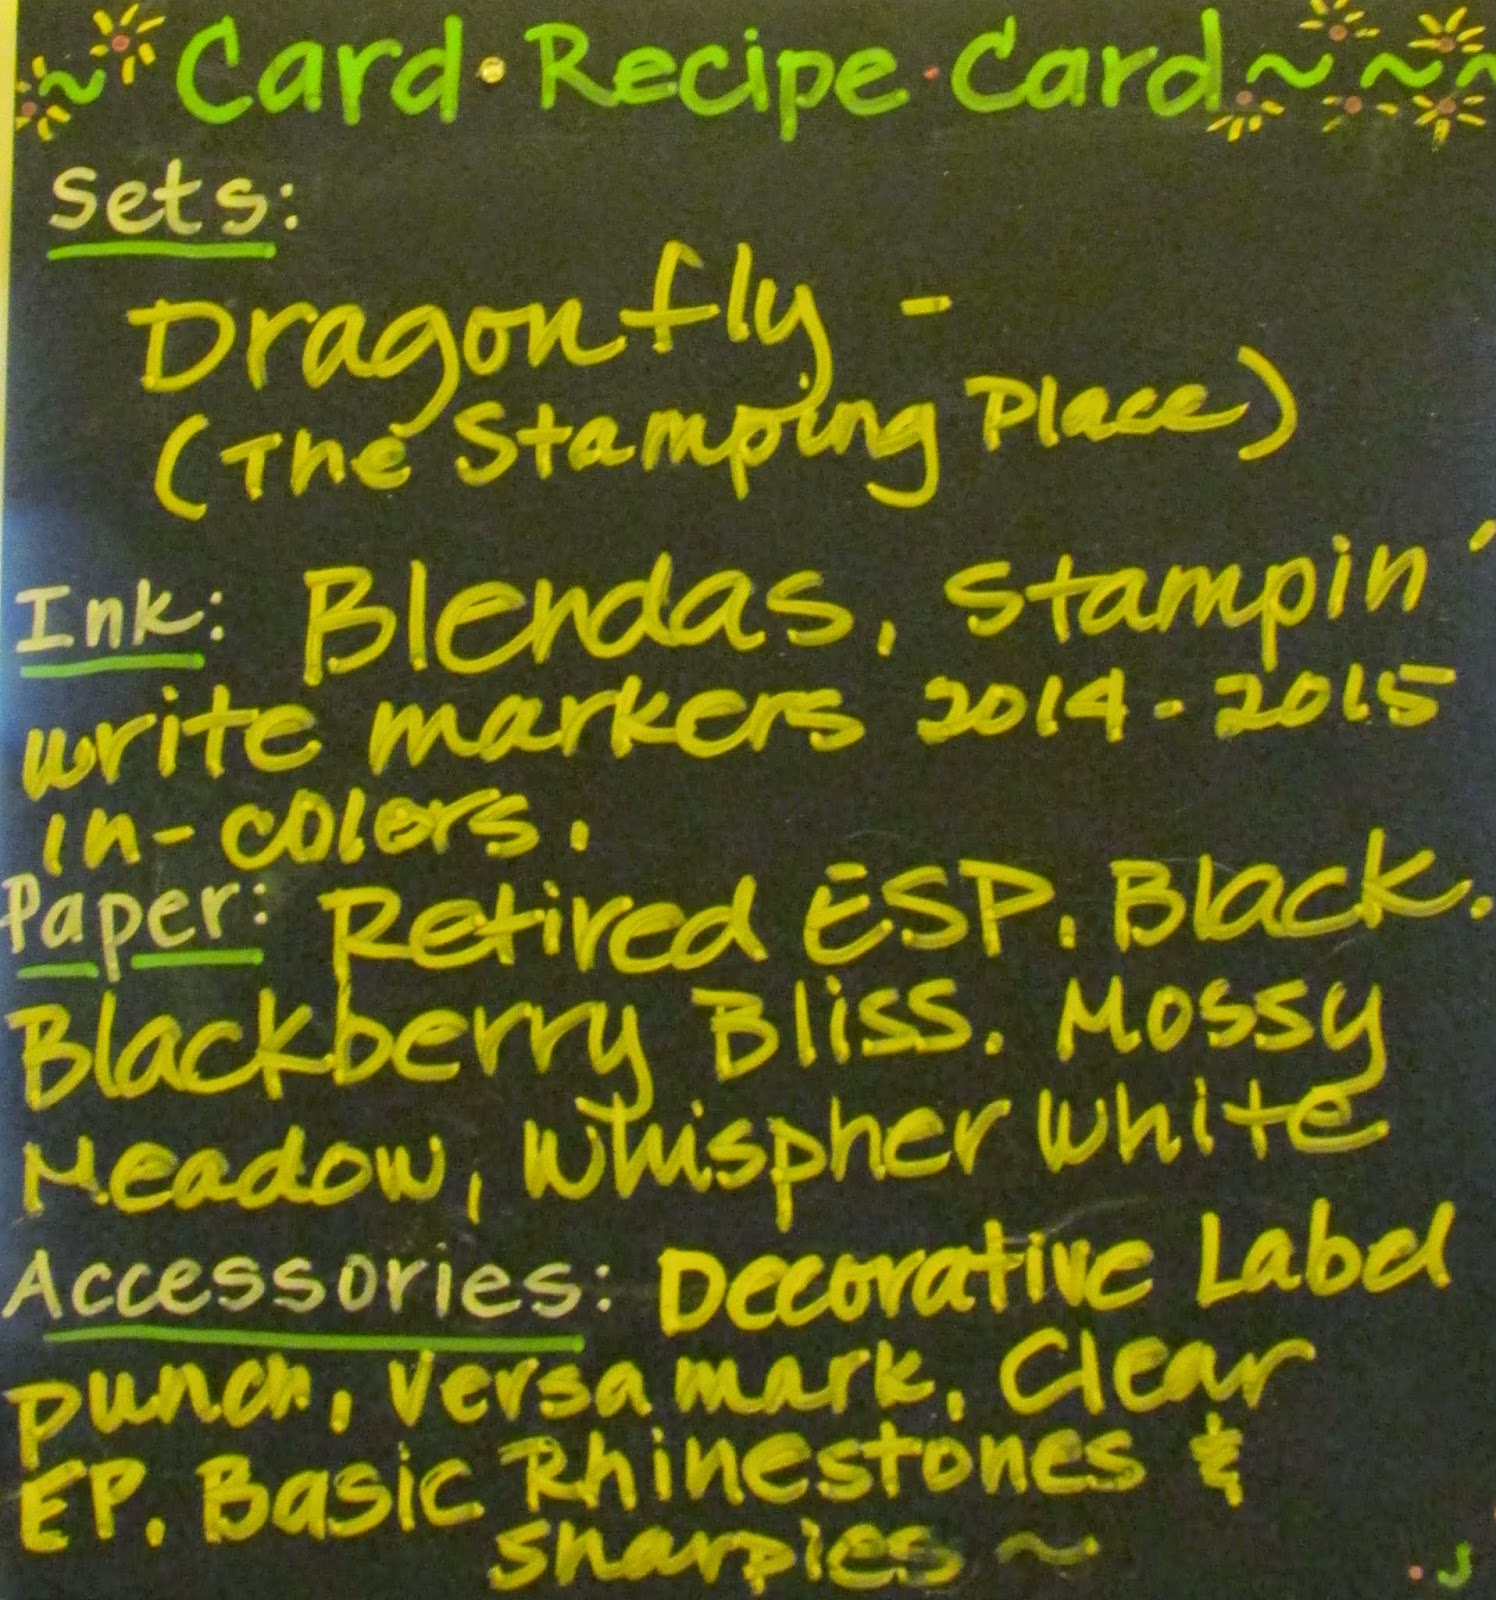 ~ Card · Recipe · Card ~ ~ ~
Sets:
Dragonfly -
(The Stamping Place)
Ink: Blendas, Stampin'
write markers 2014-2015
in-colors.
Paper: Retired ESP. Black.
Blackberry Bliss. Mossy
Meadow, Whispher White
Accessories: Decorative Label
punch, Versamark, Clear
EP. Basic Rhinestones &
sharpies ~